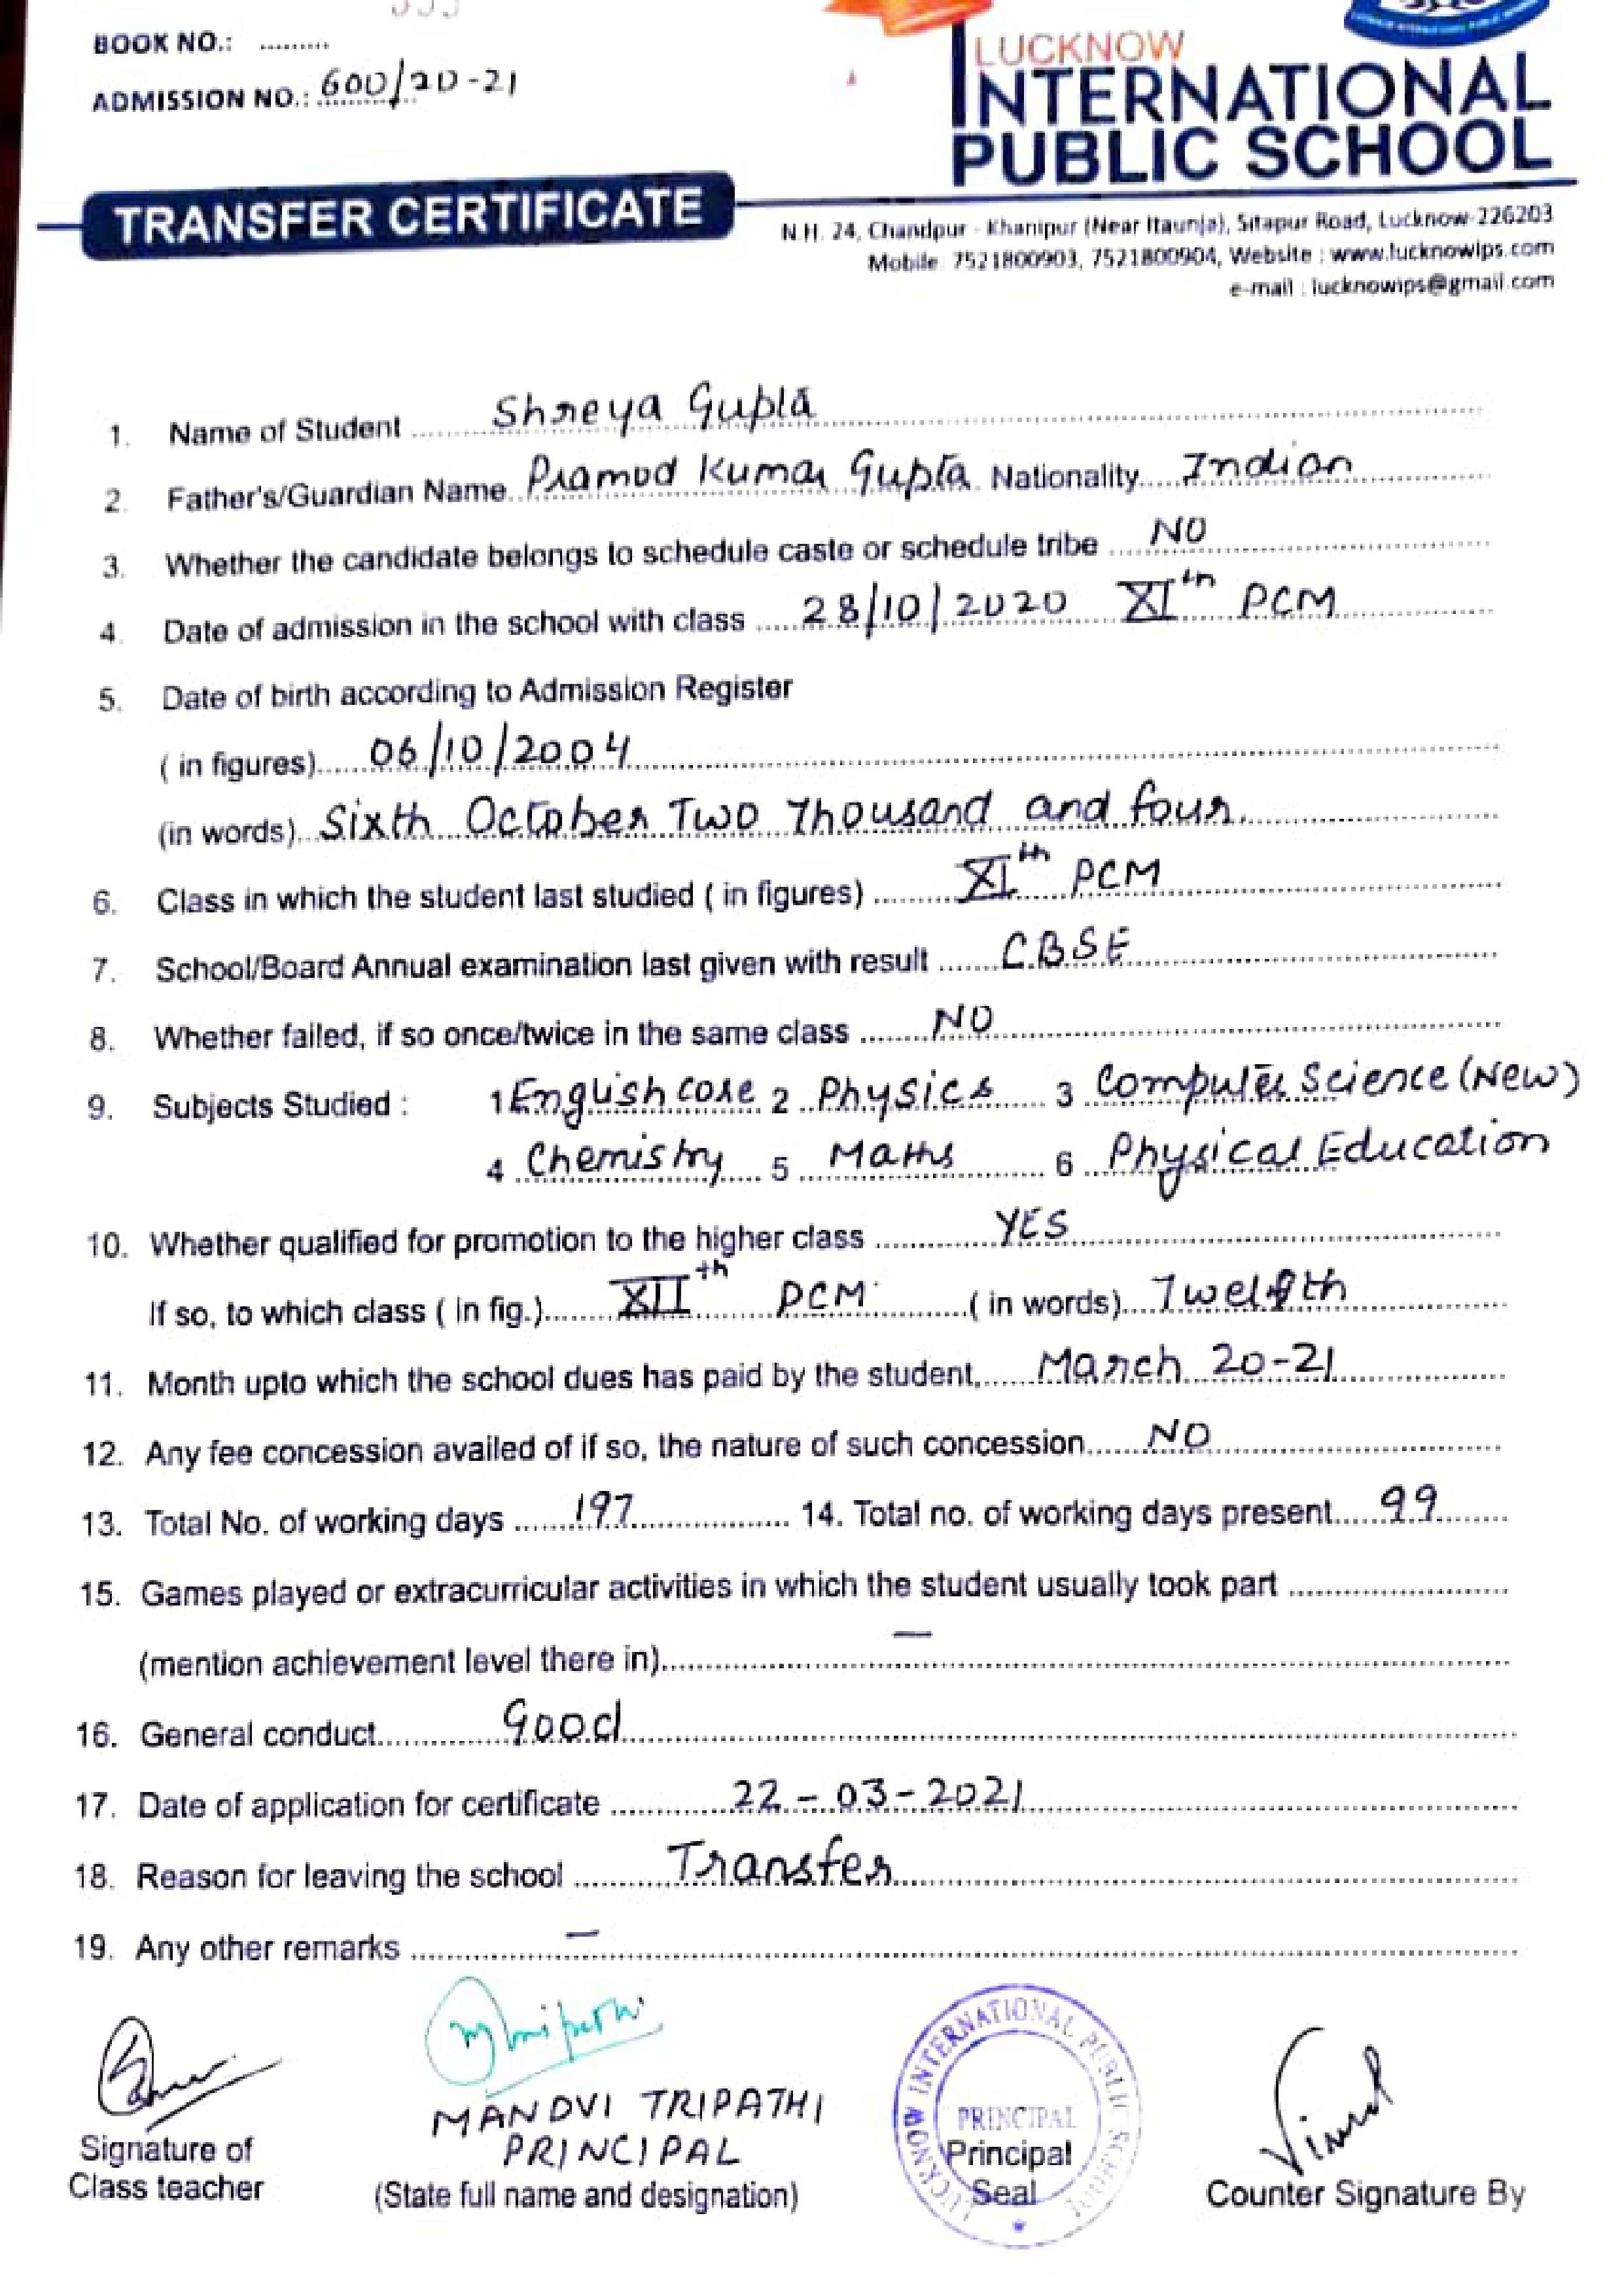 BOOK NO.: .........
ADMISSION NO.: 600/20-21
LUCKNOW
INTERNATIONAL
PUBLIC SCHOOL
TRANSFER CERTIFICATE
N.H. 24, Chandpur - Khanipur (Near Itaunja), Sitapur Road, Lucknow-226203
Mobile: 7521800903, 7521800904, Website : www.lucknowips.com
e-mail : lucknowips@gmail.com
1. Name of Student Shreya Gupta
2. Father's/Guardian Name Pramod Kumar Gupta Nationality Indian
3. Whether the candidate belongs to schedule caste or schedule tribe NO
4. Date of admission in the school with class 28/10/2020 XIth PCM
5. Date of birth according to Admission Register
( in figures) 06/10/2004
(in words) Sixth October Two Thousand and four
6. Class in which the student last studied ( in figures) XIth PCM
7. School/Board Annual examination last given with result C.B.S.E
8. Whether failed, if so once/twice in the same class NO
9. Subjects Studied : 1 English core 2 Physics 3 Computer Science (New)
4 Chemistry 5 Maths 6 Physical Education
10. Whether qualified for promotion to the higher class YES
If so, to which class ( in fig.) XIIth PCM ( in words) Twelfth
11. Month upto which the school dues has paid by the student, March 20-21
12. Any fee concession availed of if so, the nature of such concession NO
13. Total No. of working days 197 14. Total no. of working days present 99
15. Games played or extracurricular activities in which the student usually took part
(mention achievement level there in) —
16. General conduct Good
17. Date of application for certificate 22-03-2021
18. Reason for leaving the school Transfer
19. Any other remarks —
MANDVI TRIPATHI
PRINCIPAL
LUCKNOW INTERNATIONAL PUBLIC SCHOOL
PRINCIPAL
Signature of
Class teacher
(State full name and designation)
Principal
Seal
Counter Signature By